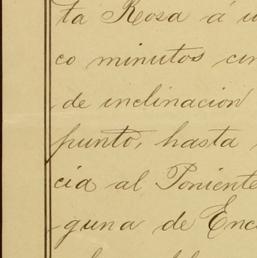 ta Rosa á u
co minutos cin
de inclinacion
punto, hasta
cia al Poniente
guna de Enc